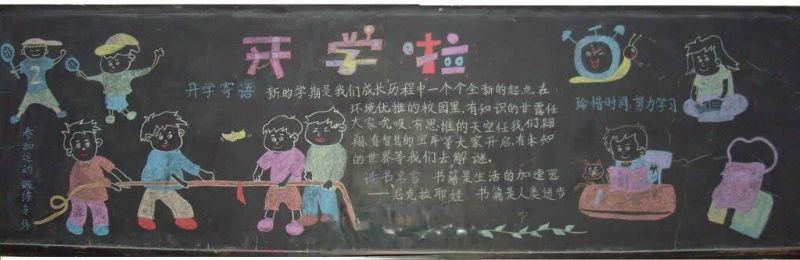 开学啦
开学寄语 新的学期是我们成长历程中一个个全新的起点,在
环境优雅的校园里,有知识的甘露任
大家吮吸,有思维的天空任我们翱
翔,有智慧的宝库等大家开启,有未知
的世界等我们去解谜。
读书名言 书籍是生活的加速器
——尼克拉耶娃 书籍是人类进步
参加运动 锻炼身体
珍惜时间,努力学习